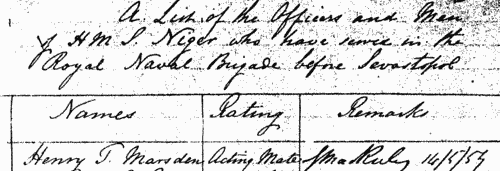 A List of the Officers and Men
of H M S. Niger who have served in the
Royal Naval Brigade before Sevastopol
Names Rating Remarks
Henry T. Marsden Acting Mate